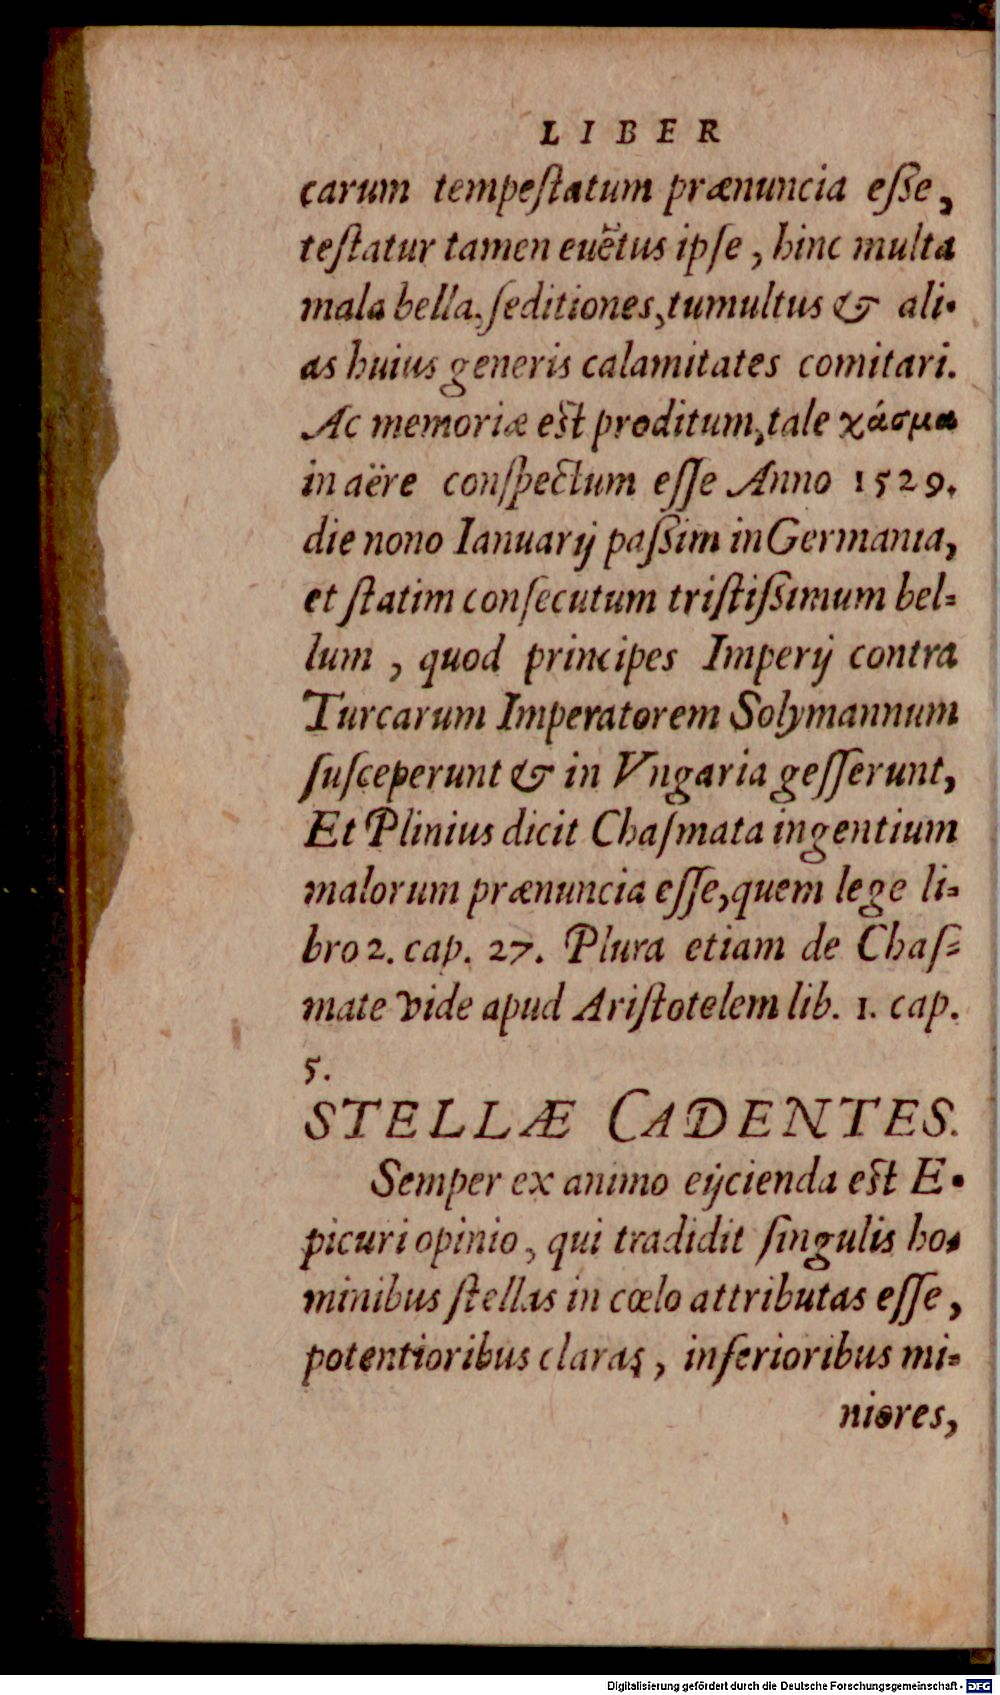 LIBER
carum tempeſtatum prænuncia eſſe,
teſtatur tamen euẽtus ipſe, hinc multa
mala bella, ſeditiones, tumultus & ali-
as huius generis calamitates comitari.
Ac memoriæ eſt proditum, tale χάσμα
in aëre conſpectum eſſe Anno 1529.
die nono Ianuarij paſſim in Germania,
et ſtatim conſecutum triſtiſſimum bel-
lum, quod principes Imperij contra
Turcarum Imperatorem Solymannum
ſuſceperunt & in Vngaria geſſerunt,
Et Plinius dicit Chaſmata ingentium
malorum prænuncia eſſe, quem lege li-
bro 2. cap. 27. Plura etiam de Chaſ-
mate vide apud Ariſtotelem lib. 1. cap.
5.
STELLÆ CADENTES.
Semper ex animo eijcienda eſt E-
picuri opinio, qui tradidit ſingulis ho-
minibus ſtellas in cœlo attributas eſſe,
potentioribus claras, inferioribus mi-
niores,
Digitalisierung gefördert durch die Deutsche Forschungsgemeinschaft - DFG